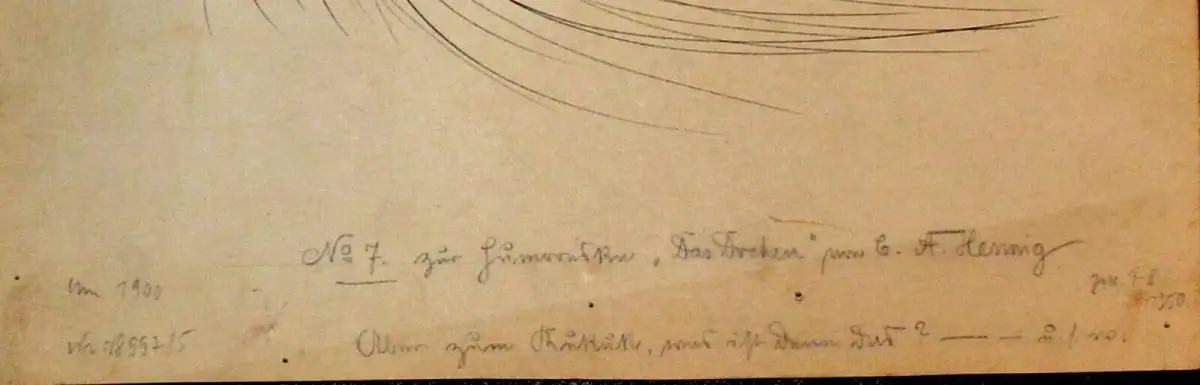 No 7. zur Humoreske „Das Drehen“ von C. A. Hennig
um 1900
Nr 18997/5
Aber zum Kukuk, was ist denn das? — – u. s. w.